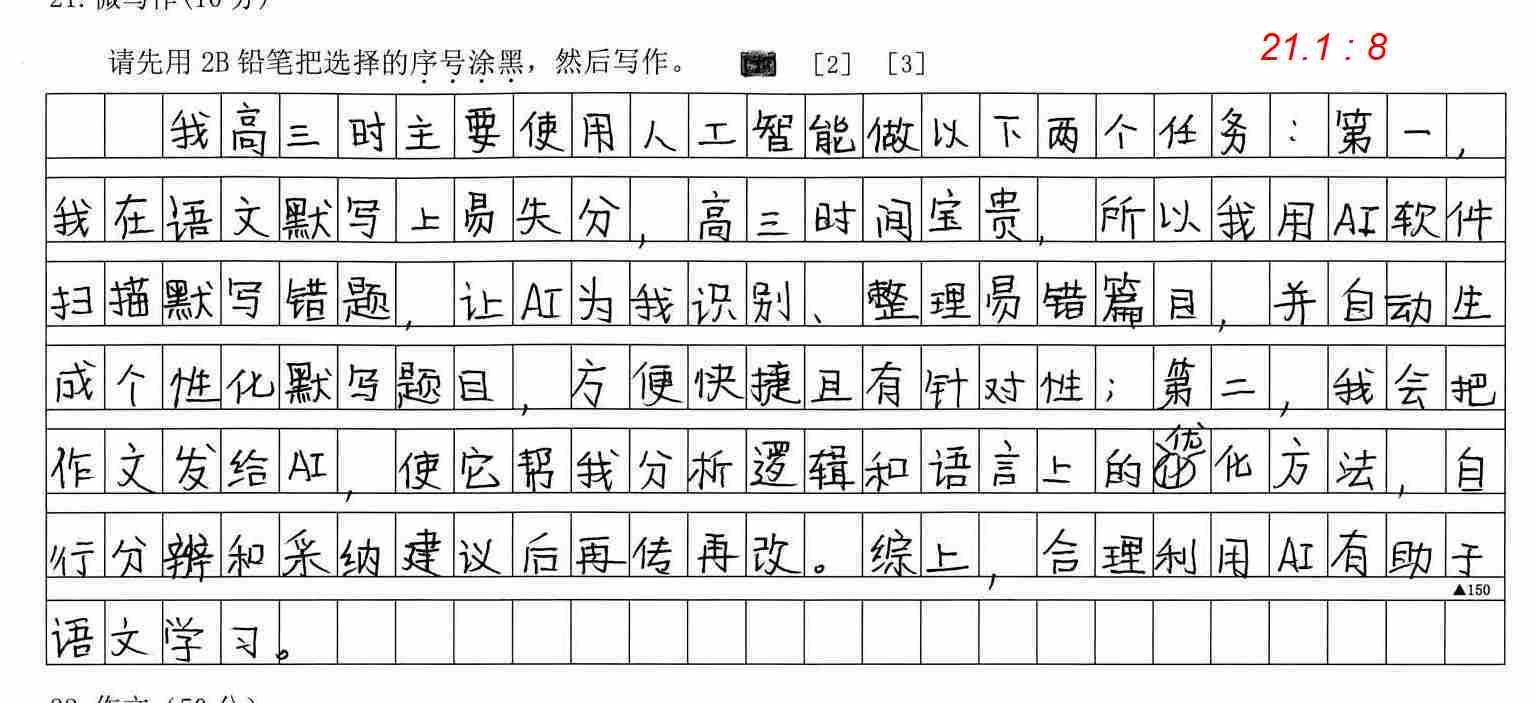 21. 微写作(10分)
请先用 2B 铅笔把选择的序号涂黑，然后写作。 [2] [3]
21.1 : 8
我高三时主要使用人工智能做以下两个任务：第一，
我在语文默写上易失分，高三时间宝贵，所以我用AI软件
扫描默写错题，让AI为我识别、整理易错篇目，并自动生
成个性化默写题目，方便快捷且有针对性；第二，我会把
作文发给AI，使它帮我分析逻辑和语言上的优化方法，自
行分辨和采纳建议后再传再改。综上，合理利用AI有助于
▲150
语文学习。